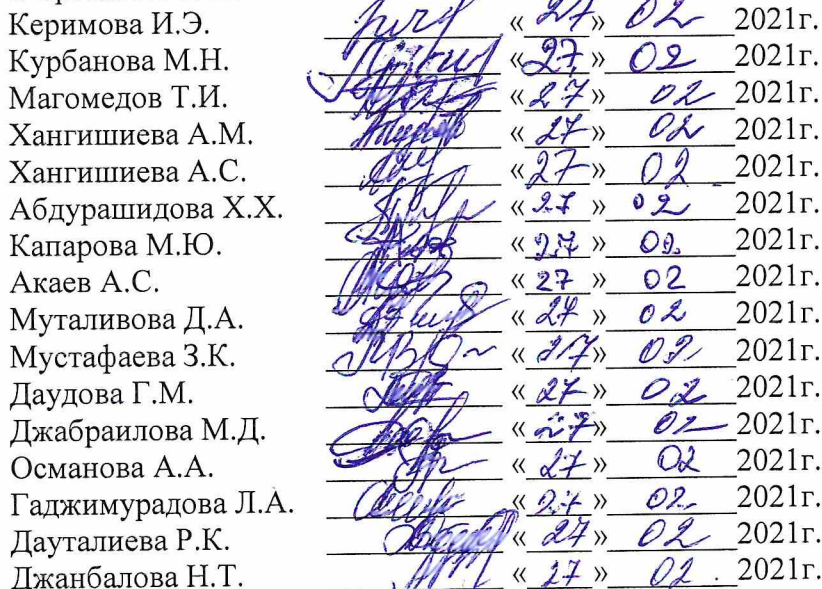 Керимова И.Э. «27» 02 2021г.
Курбанова М.Н. «27» 02 2021г.
Магомедов Т.И. «27» 02 2021г.
Хангишиева А.М. «27» 02 2021г.
Хангишиева А.С. «27» 02 2021г.
Абдурашидова Х.Х. «27» 02 2021г.
Капарова М.Ю. «27» 02. 2021г.
Акаев А.С. «27» 02 2021г.
Муталивова Д.А. «27» 02 2021г.
Мустафаева З.К. «27» 02 2021г.
Даудова Г.М. «27» 02 2021г.
Джабраилова М.Д. «27» 02 2021г.
Османова А.А. «27» 02 2021г.
Гаджимурадова Л.А. «27» 02 2021г.
Дауталиева Р.К. «27» 02 2021г.
Джанбалова Н.Т. «27» 02. 2021г.